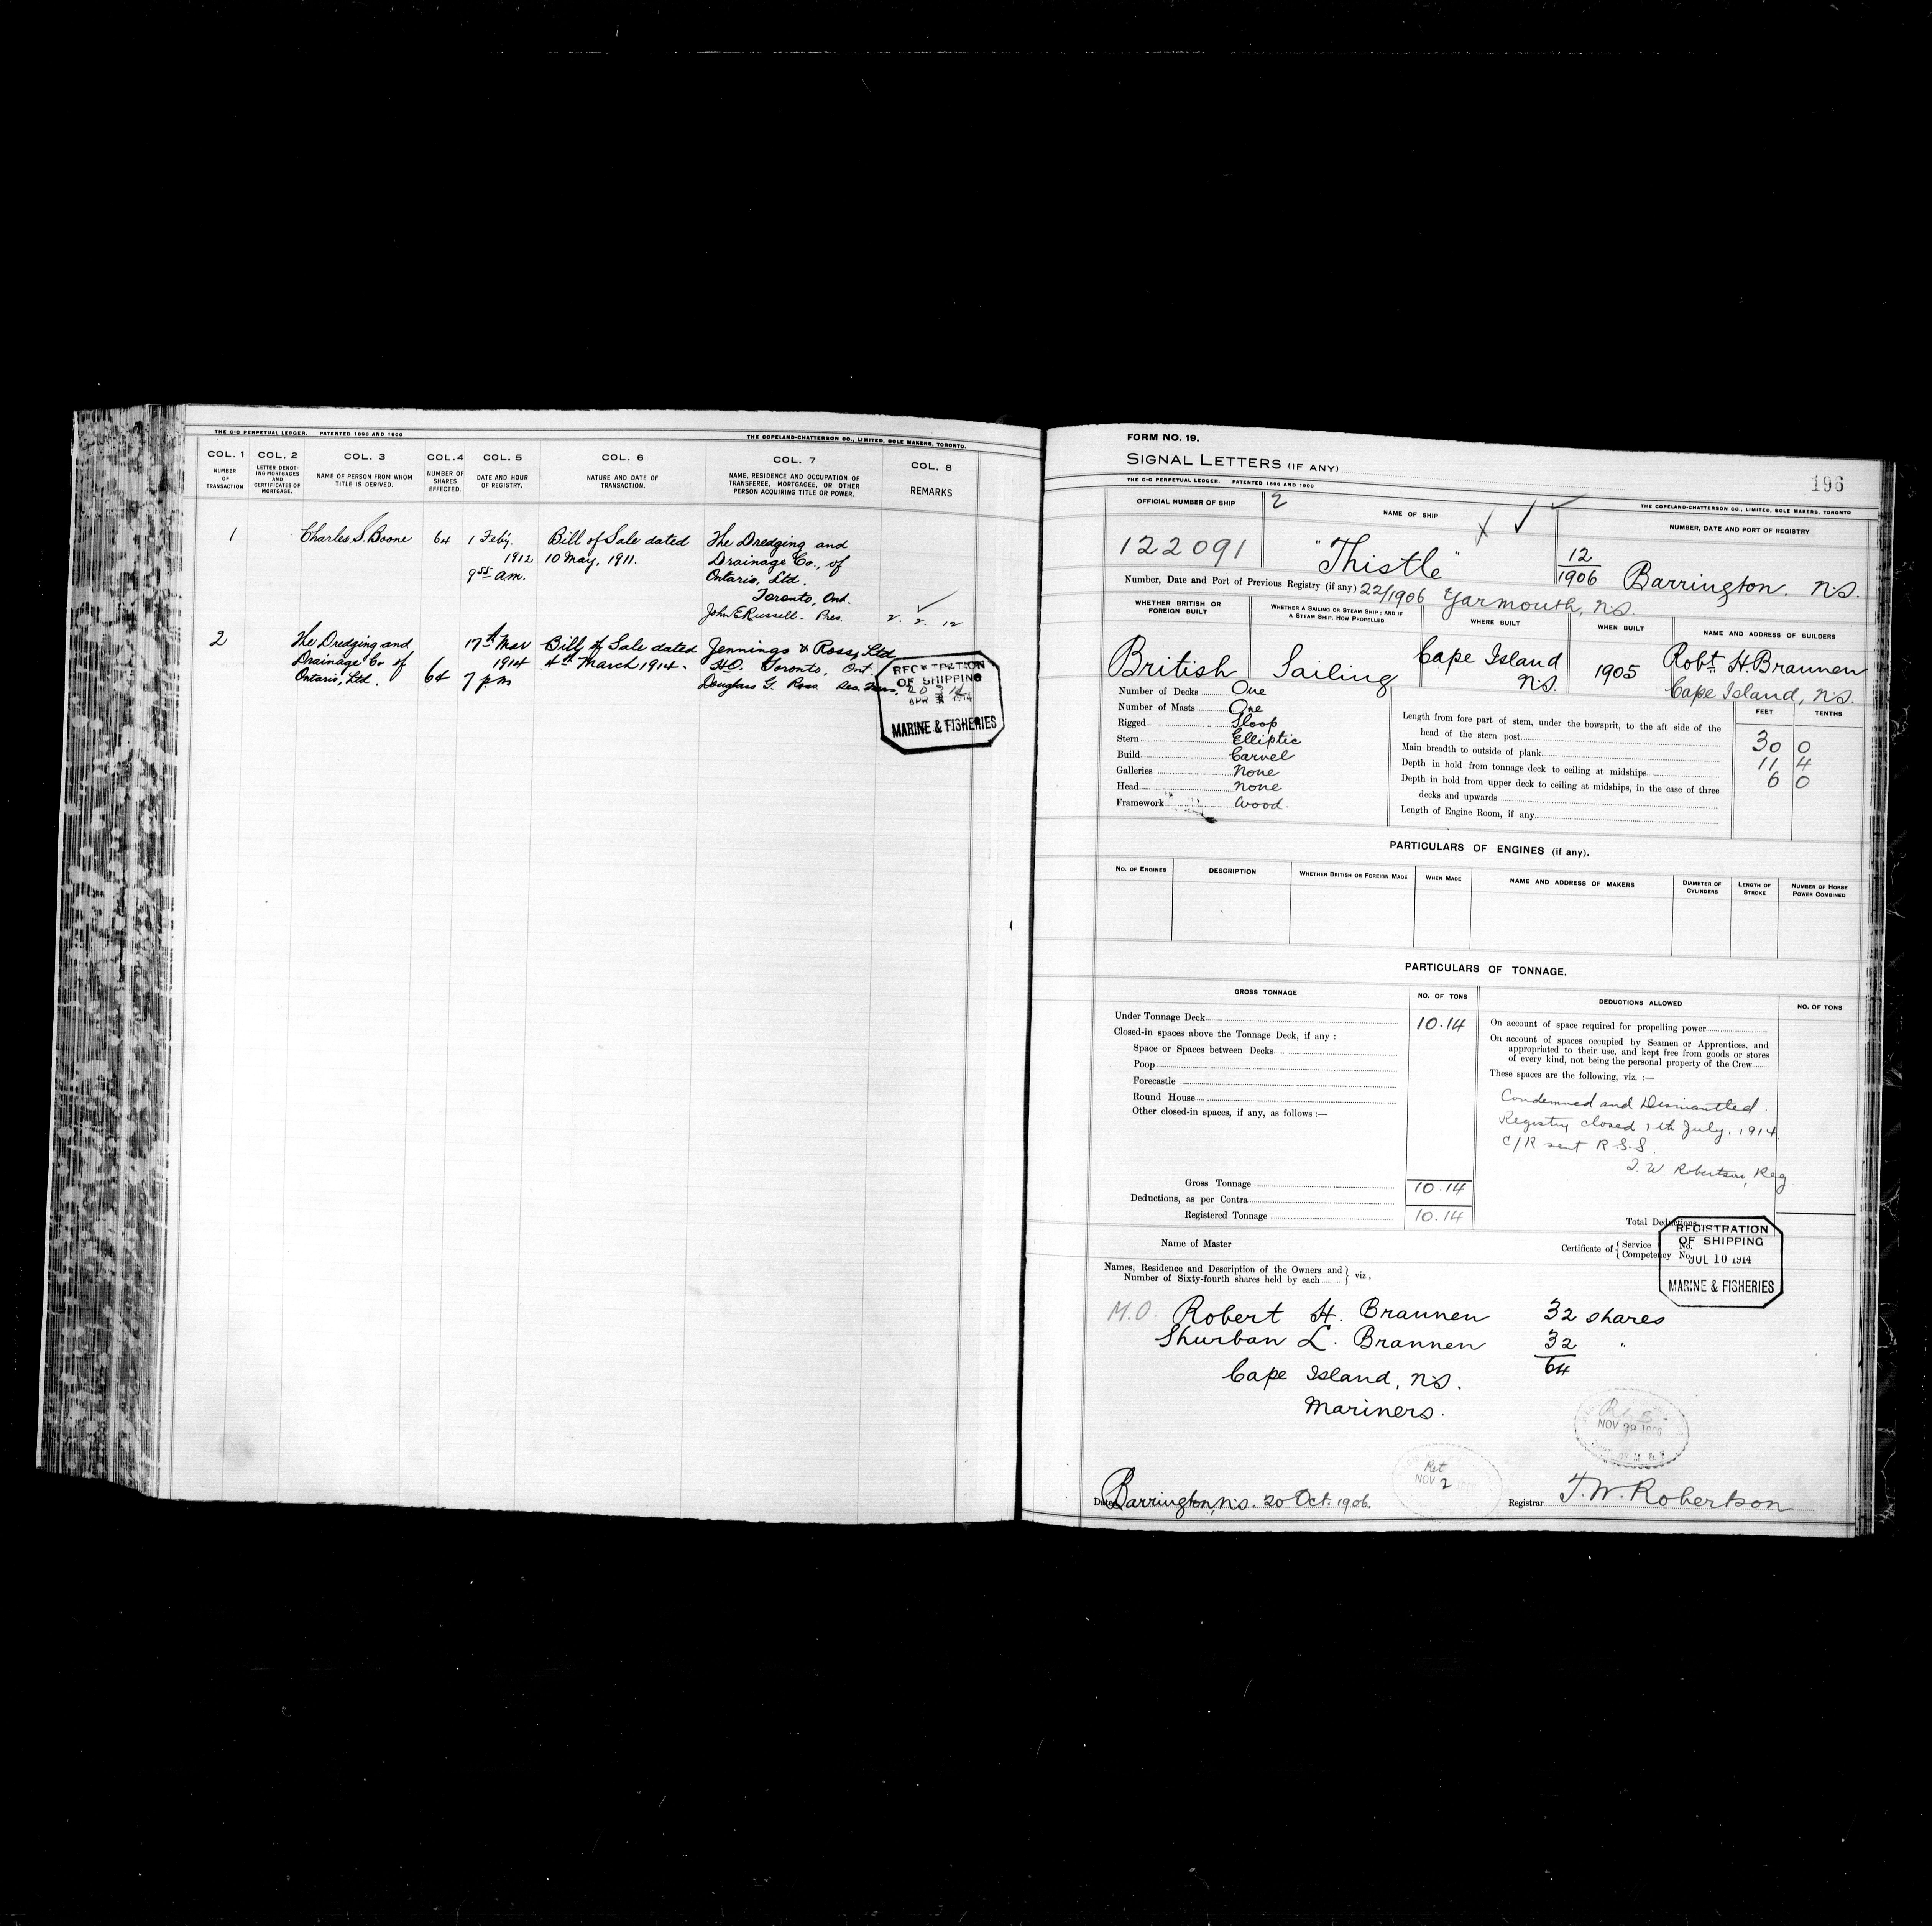 THE C-C PERPETUAL LEDGER. PATENTED 1896 AND 1900
THE COPELAND-CHATTERSON CO., LIMITED, SOLE MAKERS, TORONTO.
COL. 1 COL. 2 COL. 3 COL. 4 COL. 5 COL. 6 COL. 7 COL. 8
NUMBER OF TRANSACTION
LETTER DENOTING MORTGAGES AND CERTIFICATES OF MORTGAGE.
NAME OF PERSON FROM WHOM TITLE IS DERIVED.
NUMBER OF SHARES EFFECTED.
DATE AND HOUR OF REGISTRY.
NATURE AND DATE OF TRANSACTION.
NAME, RESIDENCE AND OCCUPATION OF TRANSFEREE, MORTGAGEE, OR OTHER PERSON ACQUIRING TITLE OR POWER.
REMARKS
1 Charles S. Boone 64 1 Feby. Bill of Sale dated The Dredging and
1912 10 May, 1911. Drainage Co., of
9 55 a.m. Ontario, Ltd.
Toronto, Ont.
John E Russell - Pres. 2. 2. 12
2 The Dredging and 17th Mar Bill of Sale dated Jennings & Ross, Ltd
Drainage Co of 1914 4th March 1914 - H.O. Toronto, Ont.
Ontario, Ltd. 64 7 p.m Douglas G. Ross Sec. Treas.
REGISTRATION
OF SHIPPING
APR 1914
MARINE & FISHERIES
FORM NO. 19.
SIGNAL LETTERS (IF ANY)
196
THE C-C PERPETUAL LEDGER. PATENTED 1896 AND 1900
THE COPELAND-CHATTERSON CO., LIMITED, SOLE MAKERS, TORONTO
OFFICIAL NUMBER OF SHIP 2 NAME OF SHIP NUMBER, DATE AND PORT OF REGISTRY
122091 "Thistle" 12/1906 Barrington. N.S.
Number, Date and Port of Previous Registry (if any) 22/1906 Yarmouth, N.S.
WHETHER BRITISH OR FOREIGN BUILT
WHETHER A SAILING OR STEAM SHIP; AND IF A STEAM SHIP, HOW PROPELLED
WHERE BUILT
WHEN BUILT
NAME AND ADDRESS OF BUILDERS
British Sailing Cape Island N.S. 1905 Robt. H. Brannen
Cape Island, N.S.
Number of Decks One
Number of Masts One
Rigged Sloop
Stern Elliptic
Build Carvel
Galleries None
Head None
Framework Wood.
FEET TENTHS
Length from fore part of stem, under the bowsprit, to the aft side of the
head of the stern post 30 0
Main breadth to outside of plank 11 4
Depth in hold from tonnage deck to ceiling at midships 6 0
Depth in hold from upper deck to ceiling at midships, in the case of three
decks and upwards
Length of Engine Room, if any
PARTICULARS OF ENGINES (if any).
NO. OF ENGINES DESCRIPTION WHETHER BRITISH OR FOREIGN MADE WHEN MADE NAME AND ADDRESS OF MAKERS DIAMETER OF CYLINDERS LENGTH OF STROKE NUMBER OF HORSE POWER COMBINED
PARTICULARS OF TONNAGE.
GROSS TONNAGE NO. OF TONS DEDUCTIONS ALLOWED NO. OF TONS
Under Tonnage Deck 10.14
Closed-in spaces above the Tonnage Deck, if any :
Space or Spaces between Decks
Poop
Forecastle
Round House
Other closed-in spaces, if any, as follows :—
Gross Tonnage 10.14
Deductions, as per Contra
Registered Tonnage 10.14
On account of space required for propelling power
On account of spaces occupied by Seamen or Apprentices, and
appropriated to their use, and kept free from goods or stores
of every kind, not being the personal property of the Crew
These spaces are the following, viz. :—
Condemned and Dismantled.
Registry closed 7th July. 1914
C/R sent R.S.S.
T. W. Robertson, Reg
Total Deductions
REGISTRATION
OF SHIPPING
JUL 10 1914
MARINE & FISHERIES
Name of Master
Certificate of { Service No.
Competency No.
Names, Residence and Description of the Owners and
Number of Sixty-fourth shares held by each } viz,
M.O. Robert H. Brannen 32 shares
Shurban L. Brannen 32 "
64
Cape Island, N.S.
Mariners.
NOV 29 1906
Ret
NOV 2 1906
Dated Barrington, N.S. 20 Oct. 1906.
Registrar T. W. Robertson